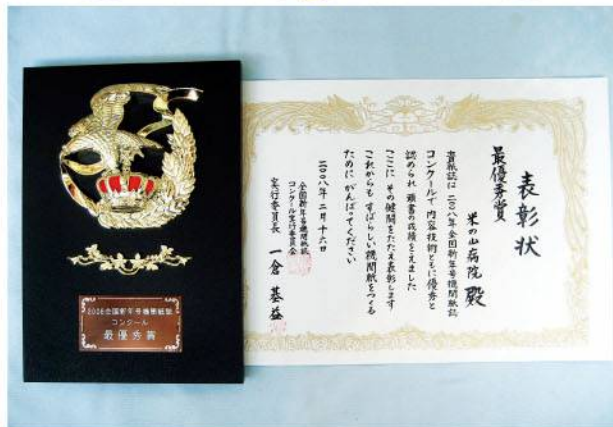 2008全国新年号機関紙誌
コンクール
最優秀賞
表彰状
最優秀賞
米の山病院 殿
貴紙誌は二〇〇八年全国新年号機関紙誌
コンクールで内容技術ともに優秀と
認められ 頭書の成績をえました
ここに その健闘をたたえ表彰します
これからも すばらしい機関紙をつくる
ために がんばってください
二〇〇八年 二月 十六日
全国新年号機関紙誌
コンクール実行委員会
実行委員長 一倉 基益